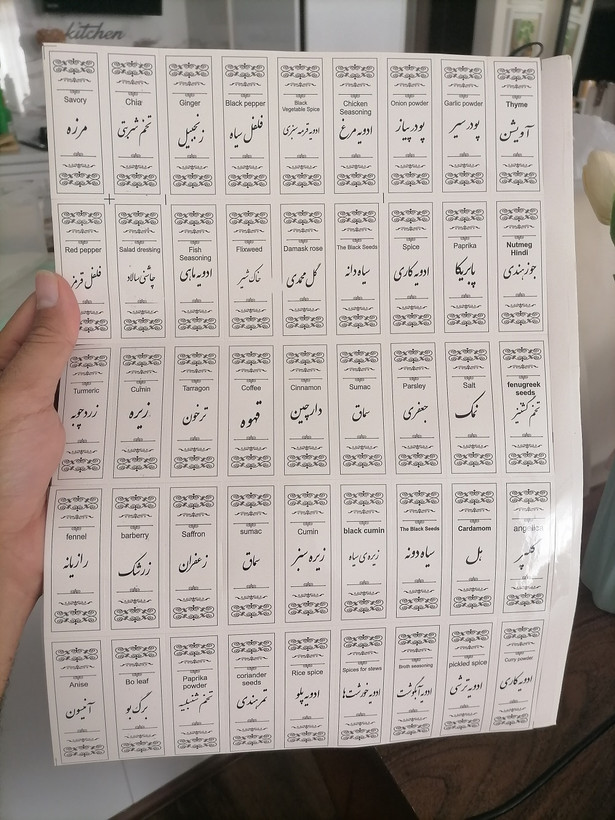 kitchen
Savory
مرزه
Chia
تخم شربتی
Ginger
زنجبیل
Black pepper
فلفل سیاه
Black
Vegetable Spice
ادویه قرمه سبزی
Chicken
Seasoning
ادویه مرغ
Onion powder
پودر پیاز
Garlic powder
پودر سیر
Thyme
آویشن
Red pepper
فلفل قرمز
Salad dressing
چاشنی سالاد
Fish
Seasoning
ادویه ماهی
Flixweed
خاک شیر
Damask rose
گل محمدی
The Black Seeds
سیاه دانه
Spice
ادویه کاری
Paprika
پاپریکا
Nutmeg
Hindi
جوز هندی
Turmeric
زردچوبه
Cumin
زیره
Tarragon
ترخون
Coffee
قهوه
Cinnamon
دارچین
Sumac
سماق
Parsley
جعفری
Salt
نمک
fenugreek
seeds
تخم گشنیز
fennel
رازیانه
barberry
زرشک
Saffron
زعفران
sumac
سماق
Cumin
زیره سبز
black cumin
زیره ی سیاه
The Black Seeds
سیاه دونه
Cardamom
هل
angelica
گلپر
Anise
آنیسون
Bo leaf
برگ بو
Paprika
powder
تخم شنبلیله
coriander
seeds
تمر هندی
Rice spice
ادویه پلو
Spices for stews
ادویه خورشت ها
Broth seasoning
ادویه آبگوشت
pickled spice
ادویه ترشی
Curry powder
ادویه کاری